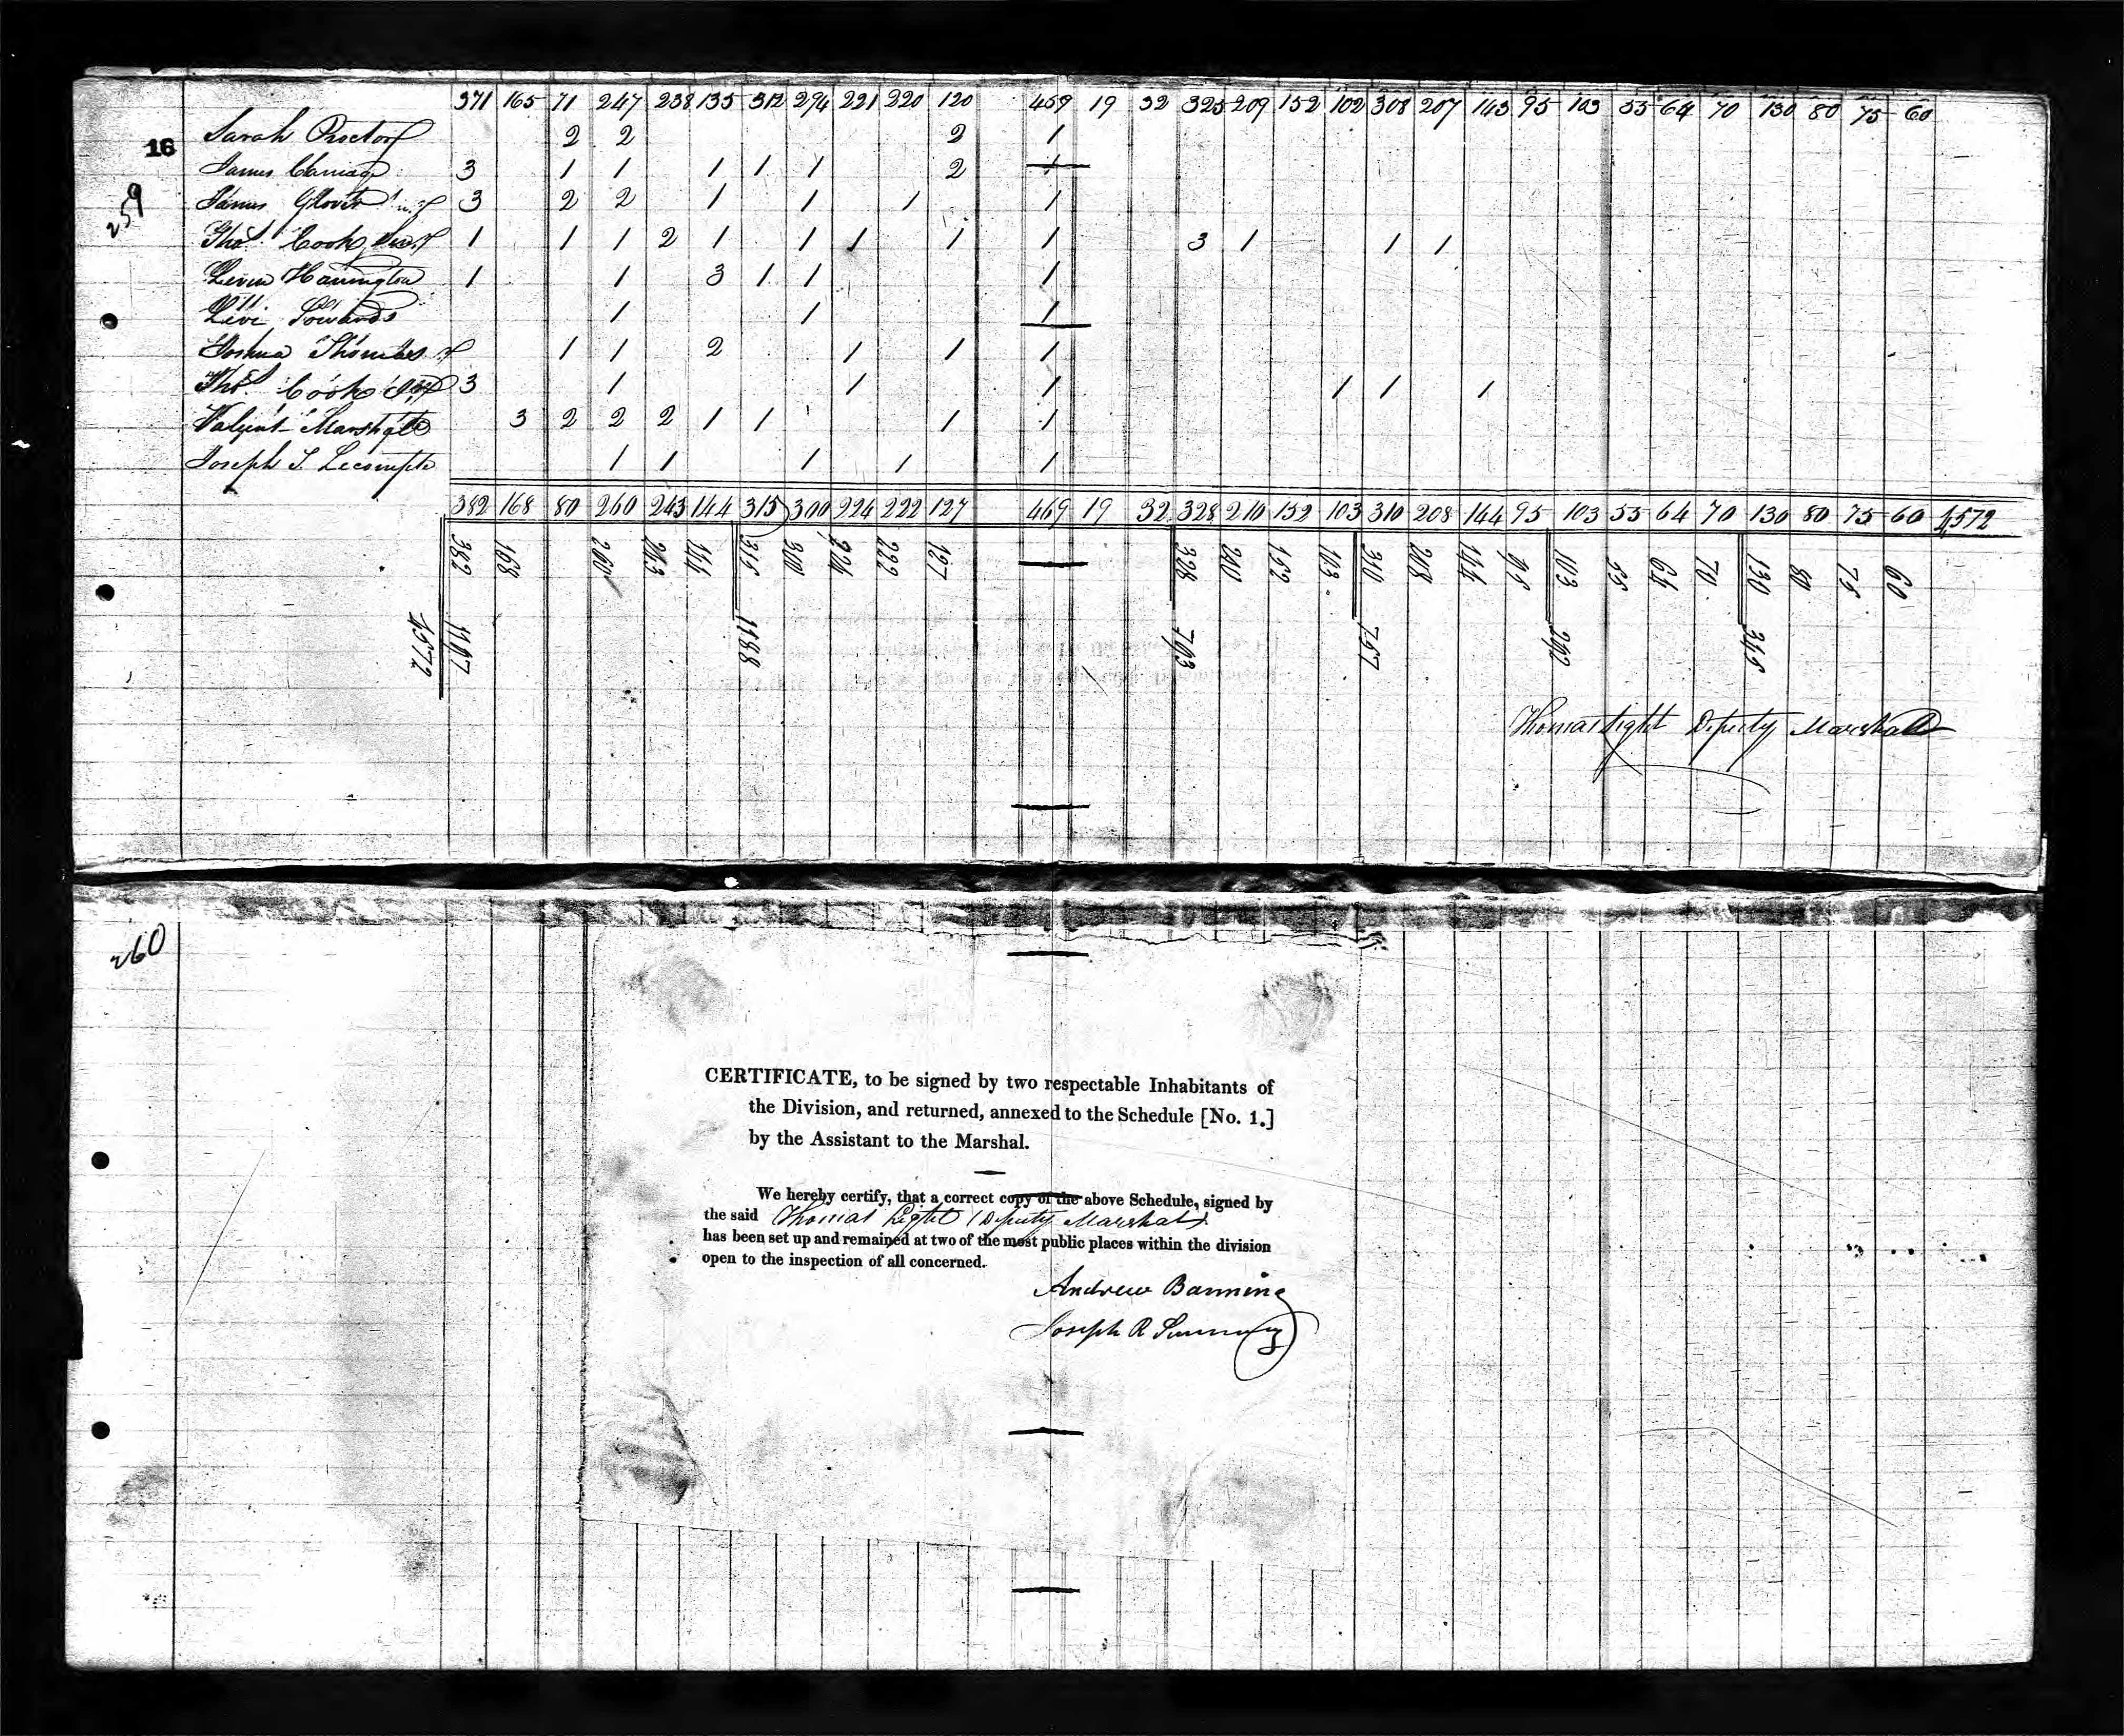 371 165 71 247 238 135 312 294 221 220 120 459 19 32 325 209 152 102 308 207 143 95 103 55 64 70 130 80 75 60
16 Sarah Proctor 2 2 2 1
James 3 1 1 1 1 1 2 1
259
James Glover 3 2 2 1 1 1 1
Thos. Cook 1 1 1 2 1 1 1 1 1 3 1 1 1
Levin Harrington 1 1 3 1 1 1
Levi 1 1 1
Joshua Thomas 1 1 2 1 1 1
Thos. Cook 3 1 1 1 1 1 1
Marshall 3 2 2 2 1 1 1 1
Joseph S. Lecompte 1 1 1 1 1
382 168 80 260 243 144 315 300 224 222 127 469 19 32 328 210 152 103 310 208 144 95 103 55 64 70 130 80 75 60 4,572
382 168 260 243 144 315 300 224 222 127 328 210 152 103 310 208 144 95 103 55 64 70 130 80 75 60
4572 1197 1188 793 757 292 345
Thomas Light Deputy Marshall
260
CERTIFICATE, to be signed by two respectable Inhabitants of
the Division, and returned, annexed to the Schedule [No. 1.]
by the Assistant to the Marshal.
We hereby certify, that a correct copy of the above Schedule, signed by
the said Thomas Light (Deputy Marshal)
has been set up and remained at two of the most public places within the division
open to the inspection of all concerned.
Andrew Banning
Joseph R